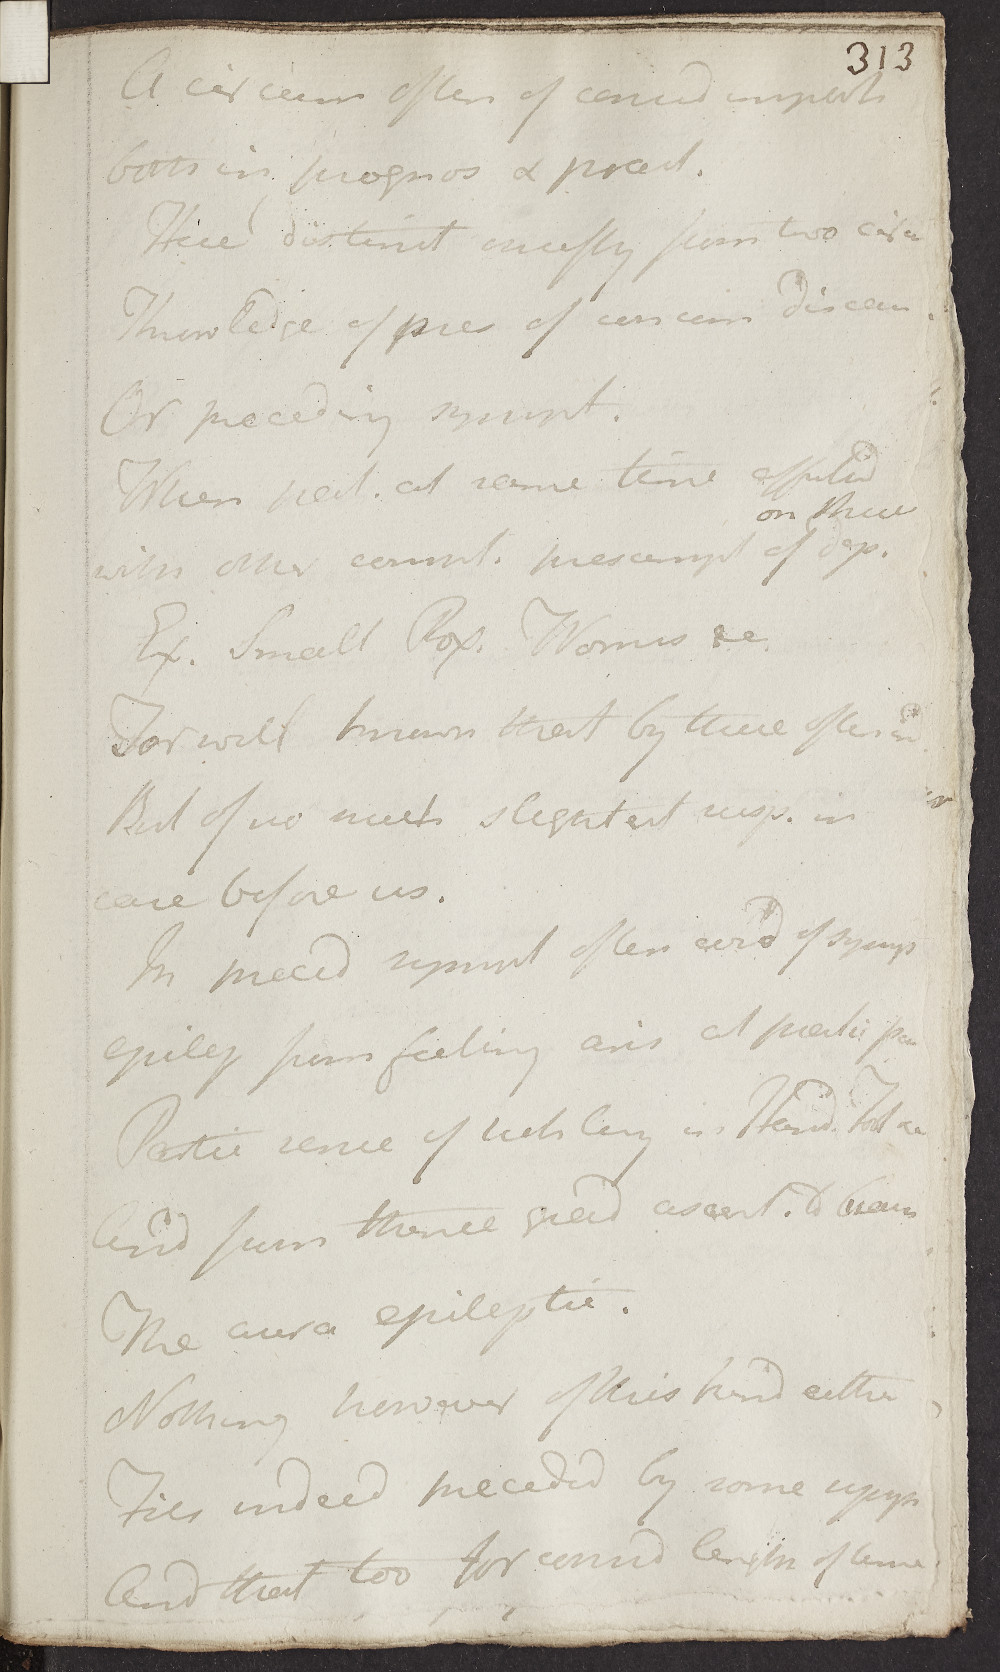 313
A circum often of consid import
both in prognos & pract.
This distinct cheifly from two circu
Knowledge of pres of concom disease.
Or preceding sympt.
When pat. at same time afflictd
with other compl. presumpt of dep.
on these
Ex. Small Pox. Worms &c
For well known that by these often
But of no such slightest susp. in
case before us.
In preced sympt often evid of symp
epilep from feeling aris at partic par
Partic sense of in Hand. Foot &c
And from thence grad ascend. to
The aura epileptic.
Nothing however of this kind either
Fits indeed preceded by some symp
And that too for consid length of time